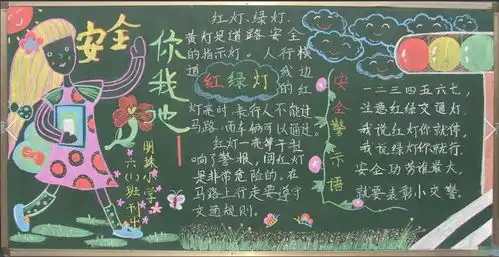 安全
你我他
明珠小学
六(1)班刊出
红灯、绿灯、
黄灯是道路安全
的指示灯。人行横
道
线边
的红
红绿灯
灯亮时,表行人不能过
马路,而车辆可以通过。
红灯一亮等于批
响了警报,闯红灯
是非常危险的。在
马路上行走要遵守
交通规则。
安全警示语
一二三四五六七,
注意红绿交通灯。
我说红灯你就停,
我说绿灯你就行。
安全功劳谁最大,
就要表彰小交警。